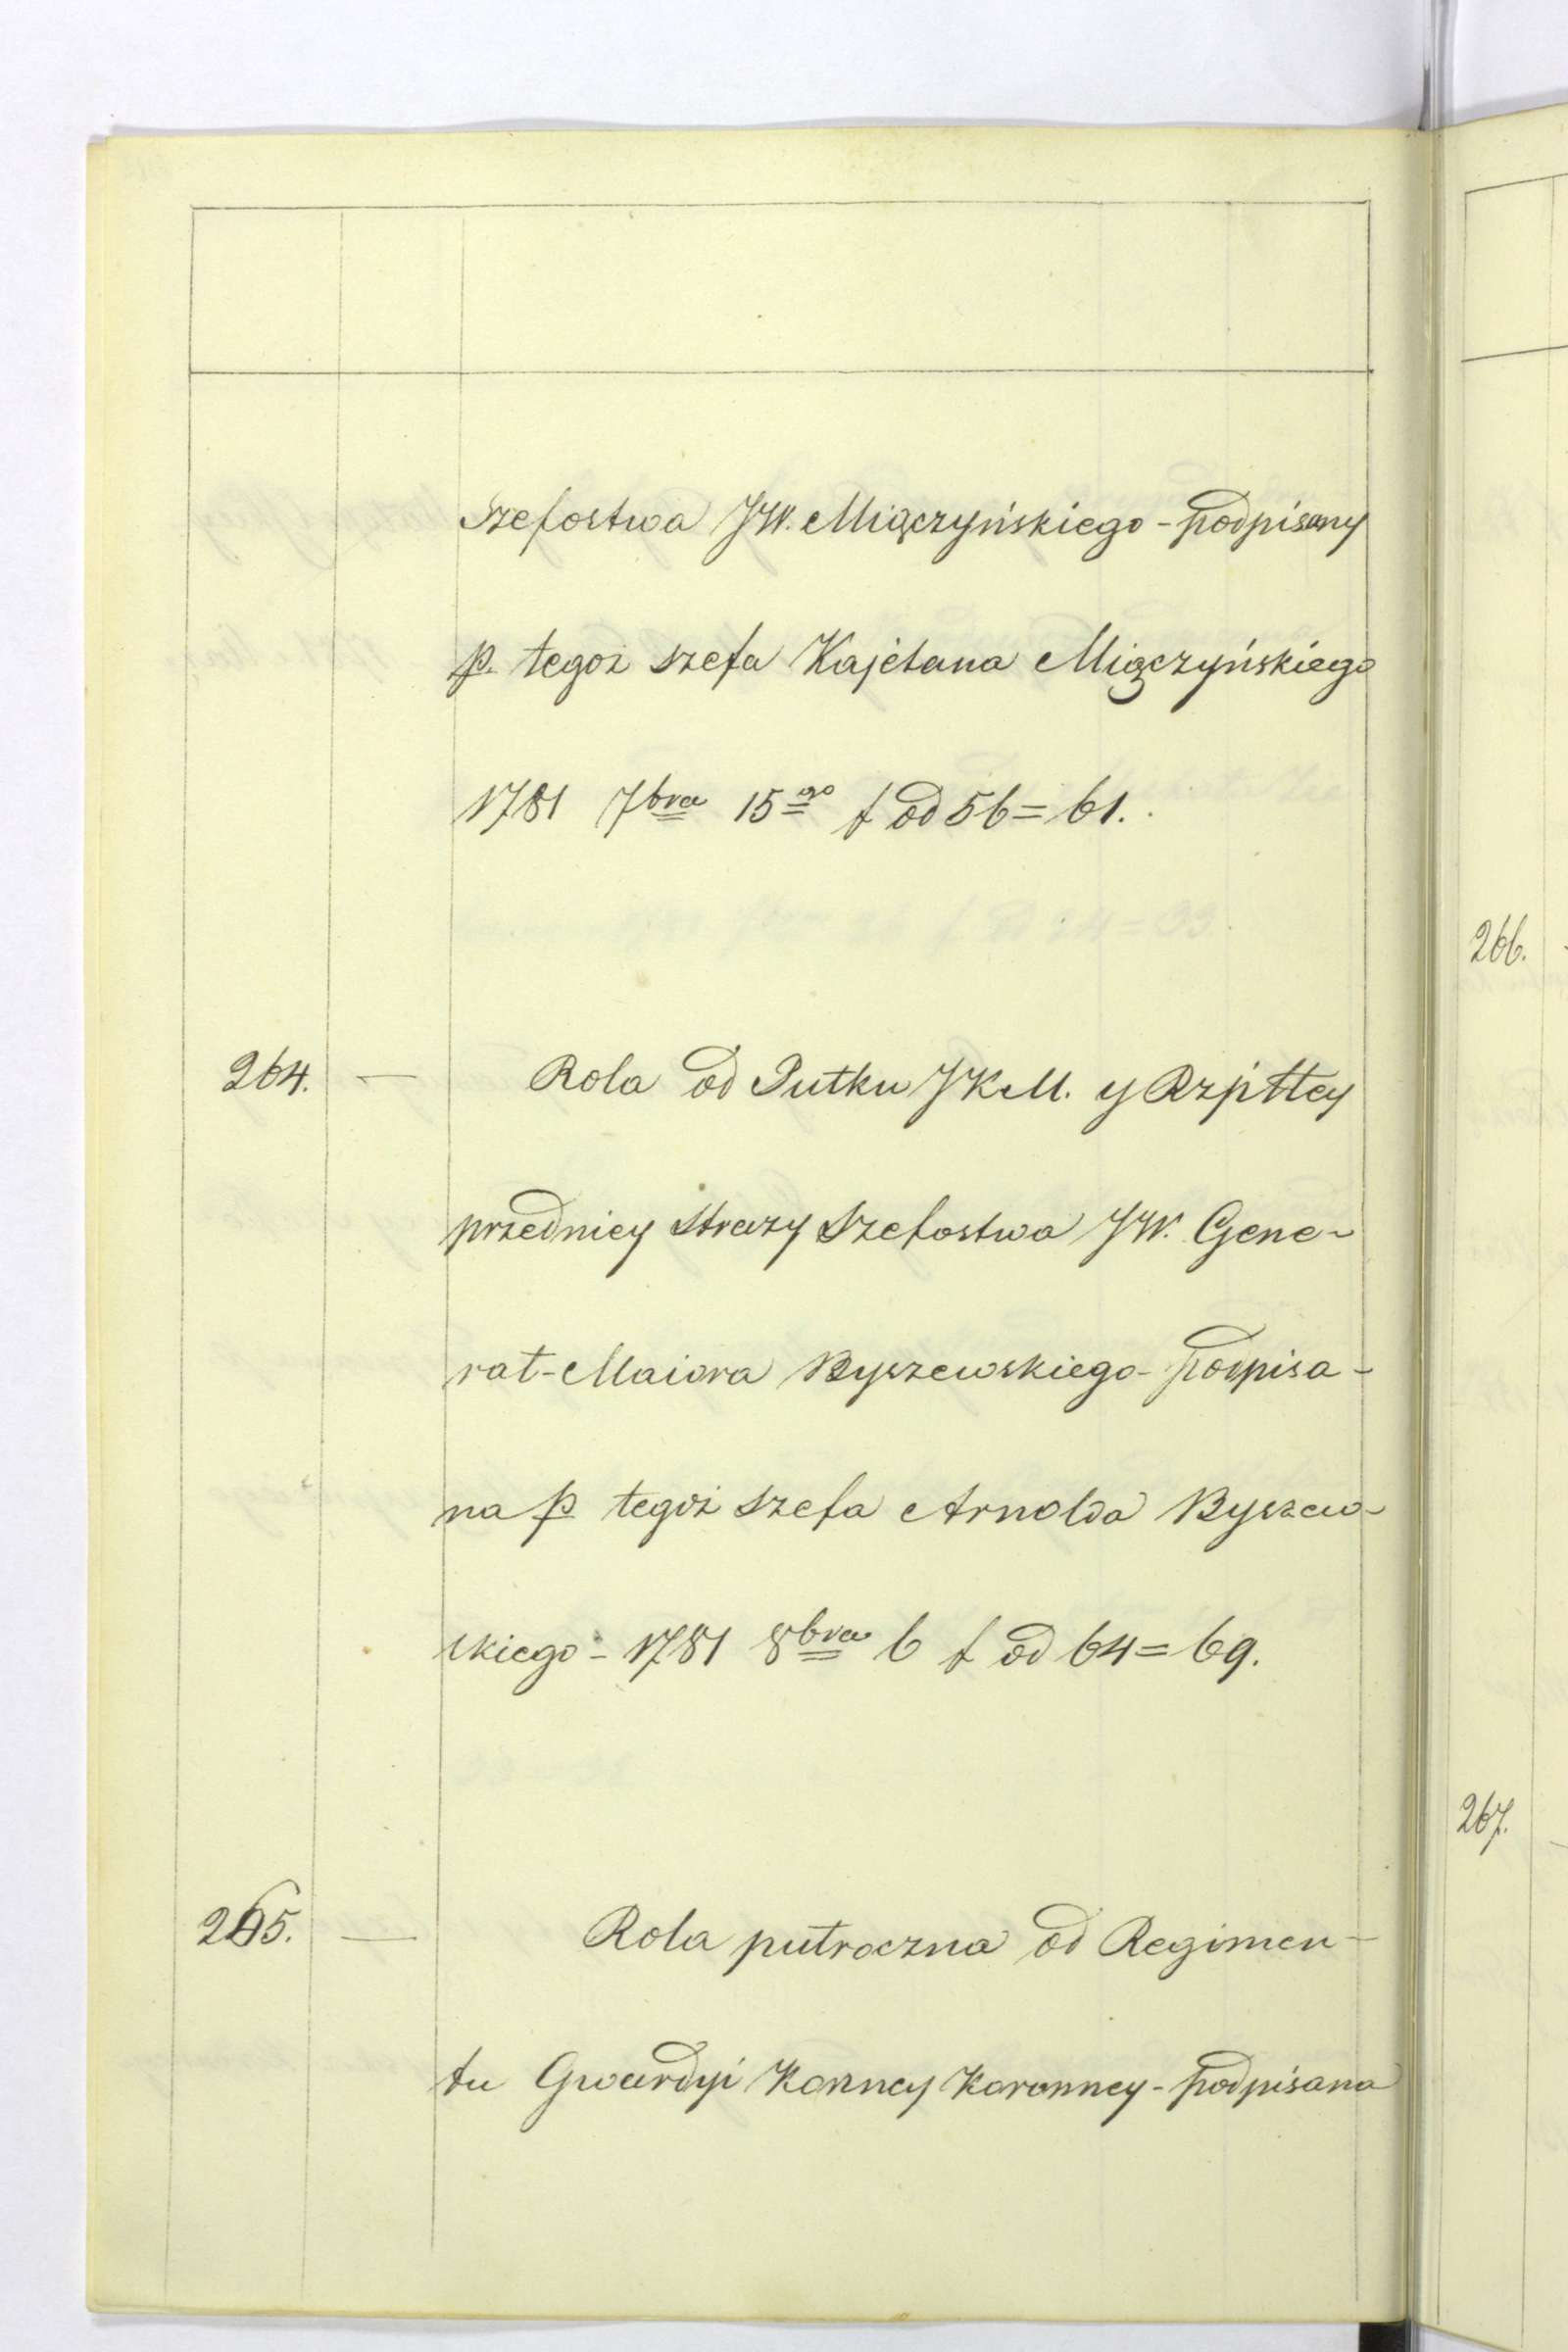 Szefostwa JW. Miączyńskiego - podpisany
p. tegoż szefa Kajetana Miączyńskiego
1781 7bra 15go f od 56 = 61.
264. — Rola od Pułku JKM. y Rzpttey
przedniey Straży Szefostwa JW. Gene-
rał-Maiora Byszewskiego - podpisa-
na p tegoż szefa Arnolda Byszew-
skiego - 1781 8bra 6 f od 64 = 69.
265. — Rola pułroczna od Regimen-
tu Gwardyi Konney Koronney - podpisana
266.
267.